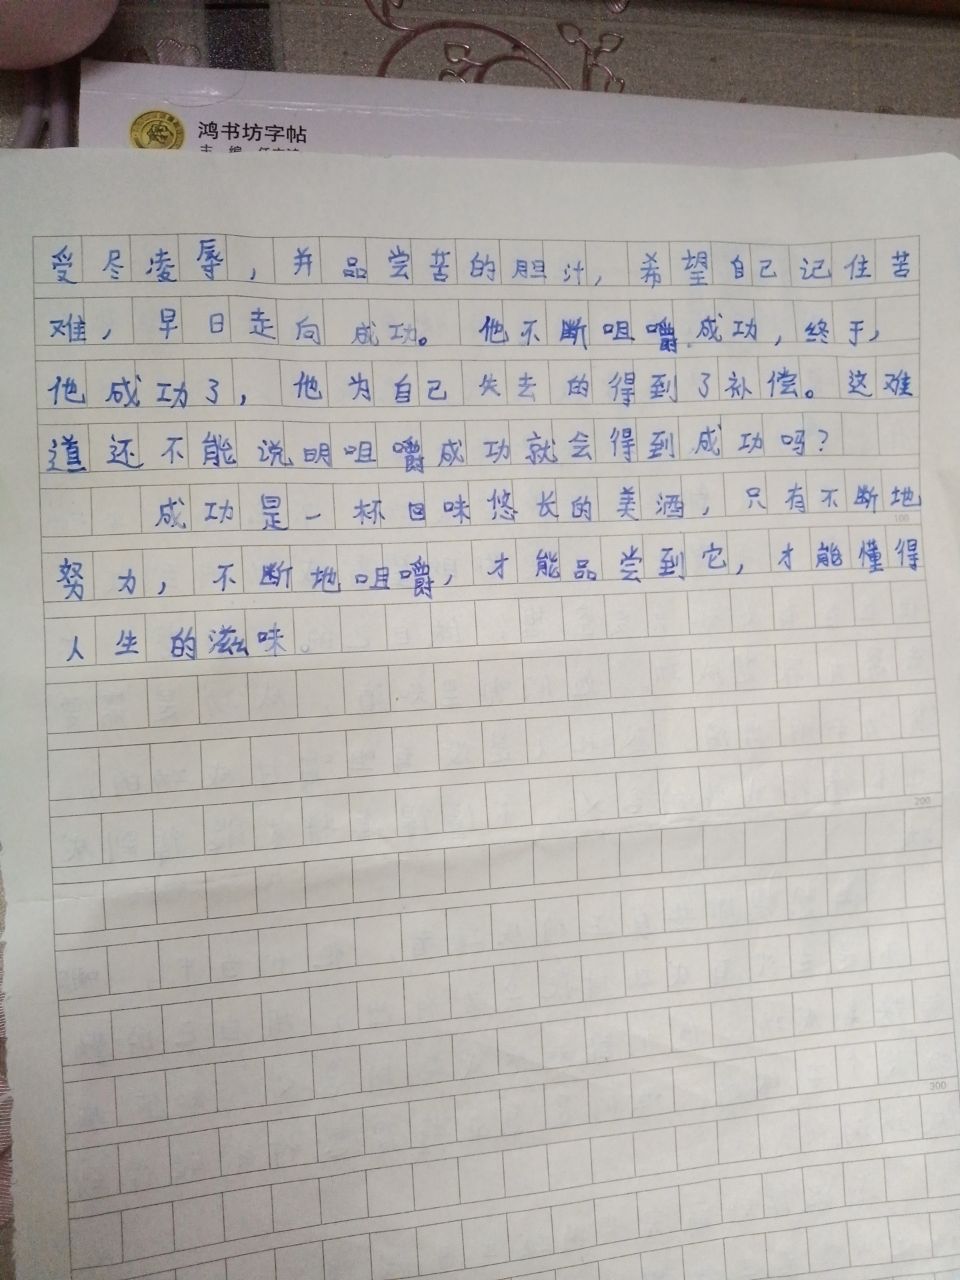 鸿书坊字帖
受尽凌辱，并品尝苦的胆汁，希望自己记住苦
难，早日走向成功。他不断咀嚼成功，终于，
他成功了，他为自己失去的得到了补偿。这难
道还不能说明咀嚼成功就会得到成功吗？
成功是一杯回味悠长的美酒，只有不断地
100
努力，不断地咀嚼，才能品尝到它，才能懂得
人生的滋味。
200
300